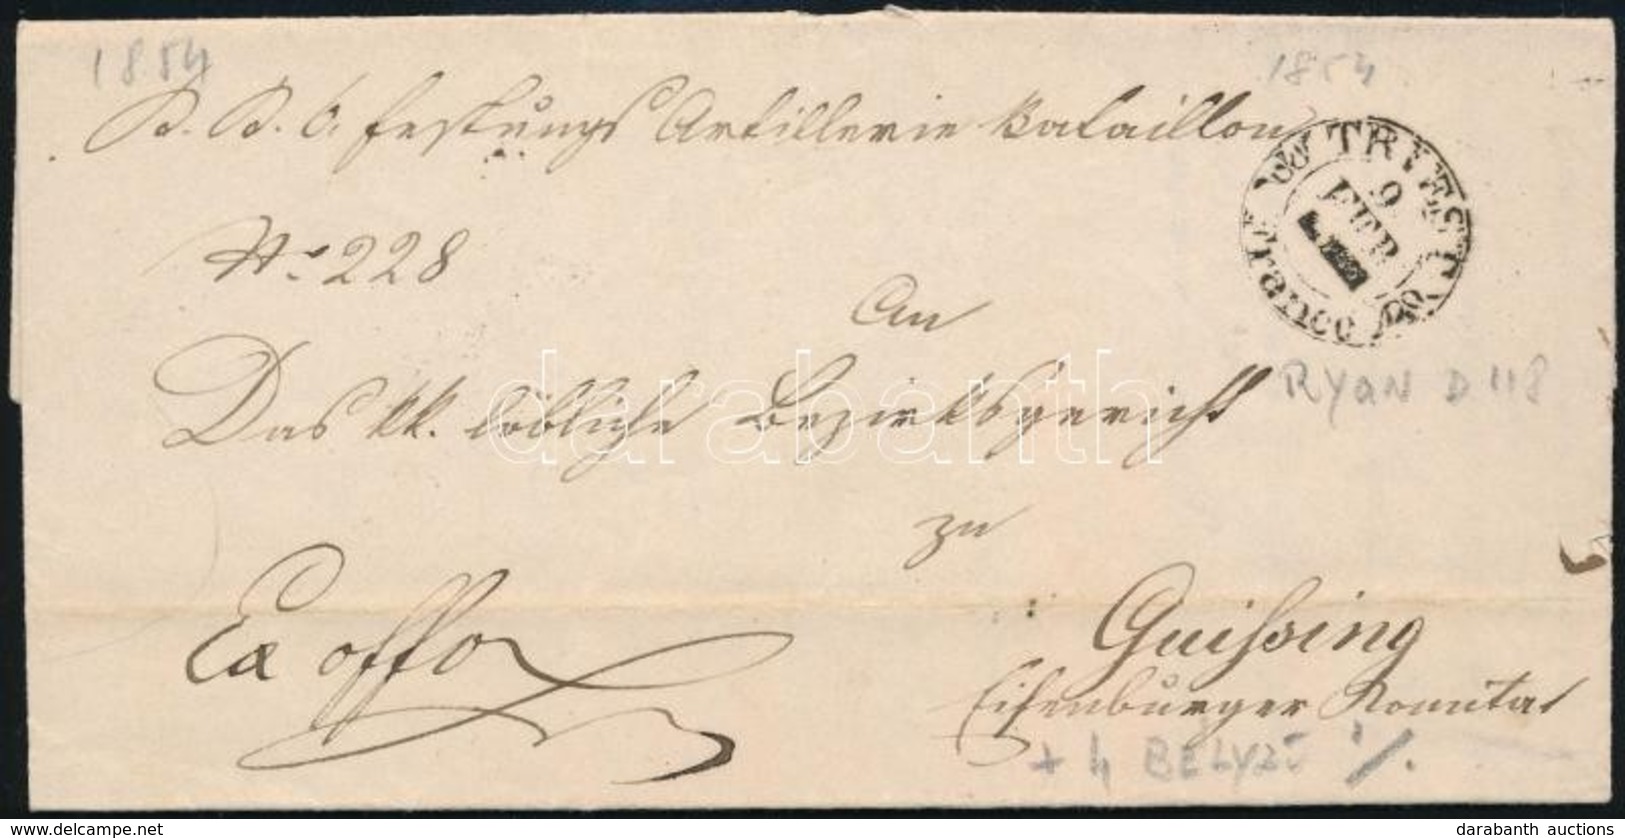 1854
1854
K. K. 6. Festungs Artillerie Bataillon
TRIEST
9
FEB
Franco
No 228
An
Das kk. löbliche Bezirksgericht
RYAN D 118
zu
Ex offo
Guissing
Eisenburger Komitat
+ 4 BELYZŐ
darabanth
darabanth auctions
delcampe.net